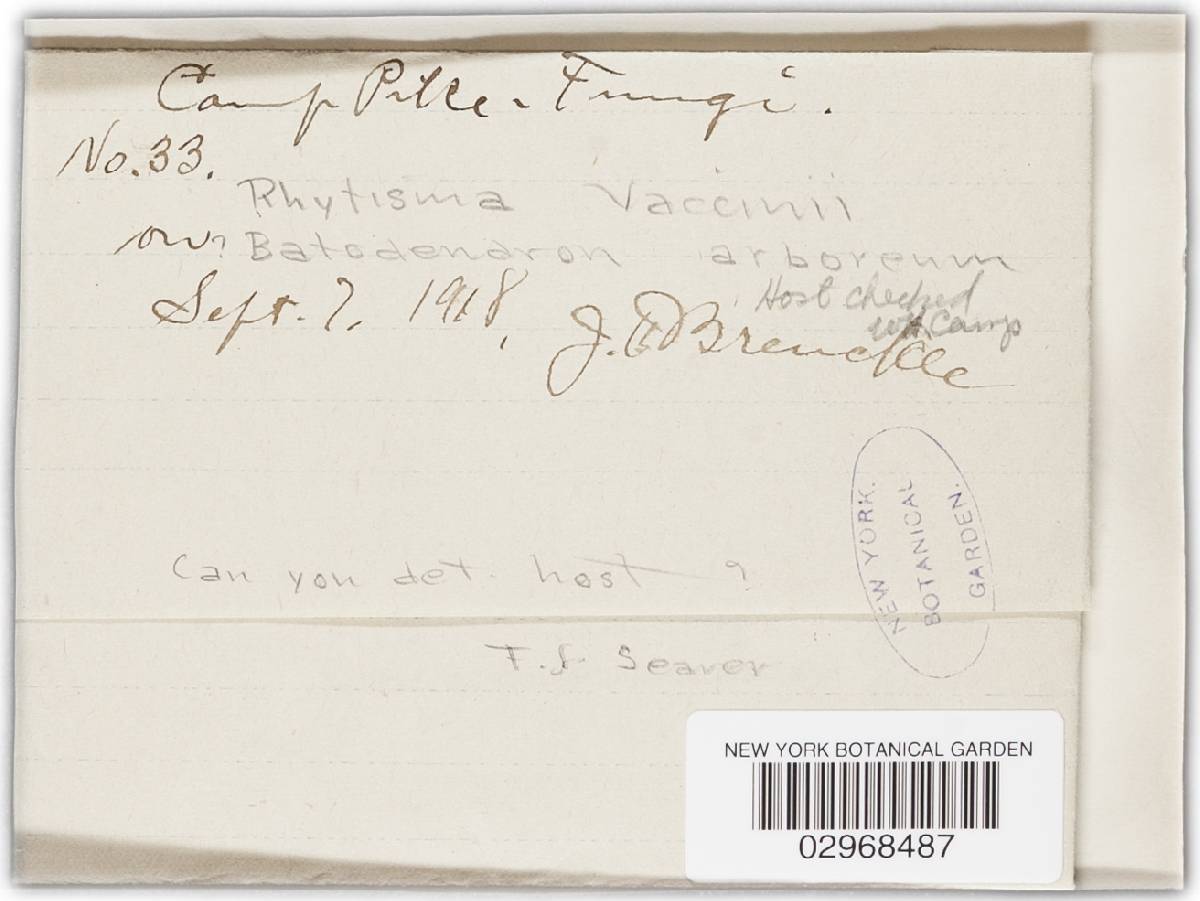 Camp Pike - Fungi.
No. 33.
Rhytisma Vaccinii
on? Batodendron arboreum
Host checked
WH. Camp
Sept. 7, 1918, J. F. Brenckle
NEW YORK.
BOTANICAL
GARDEN.
Can you det. host ?
F. J. Seaver
NEW YORK BOTANICAL GARDEN
02968487